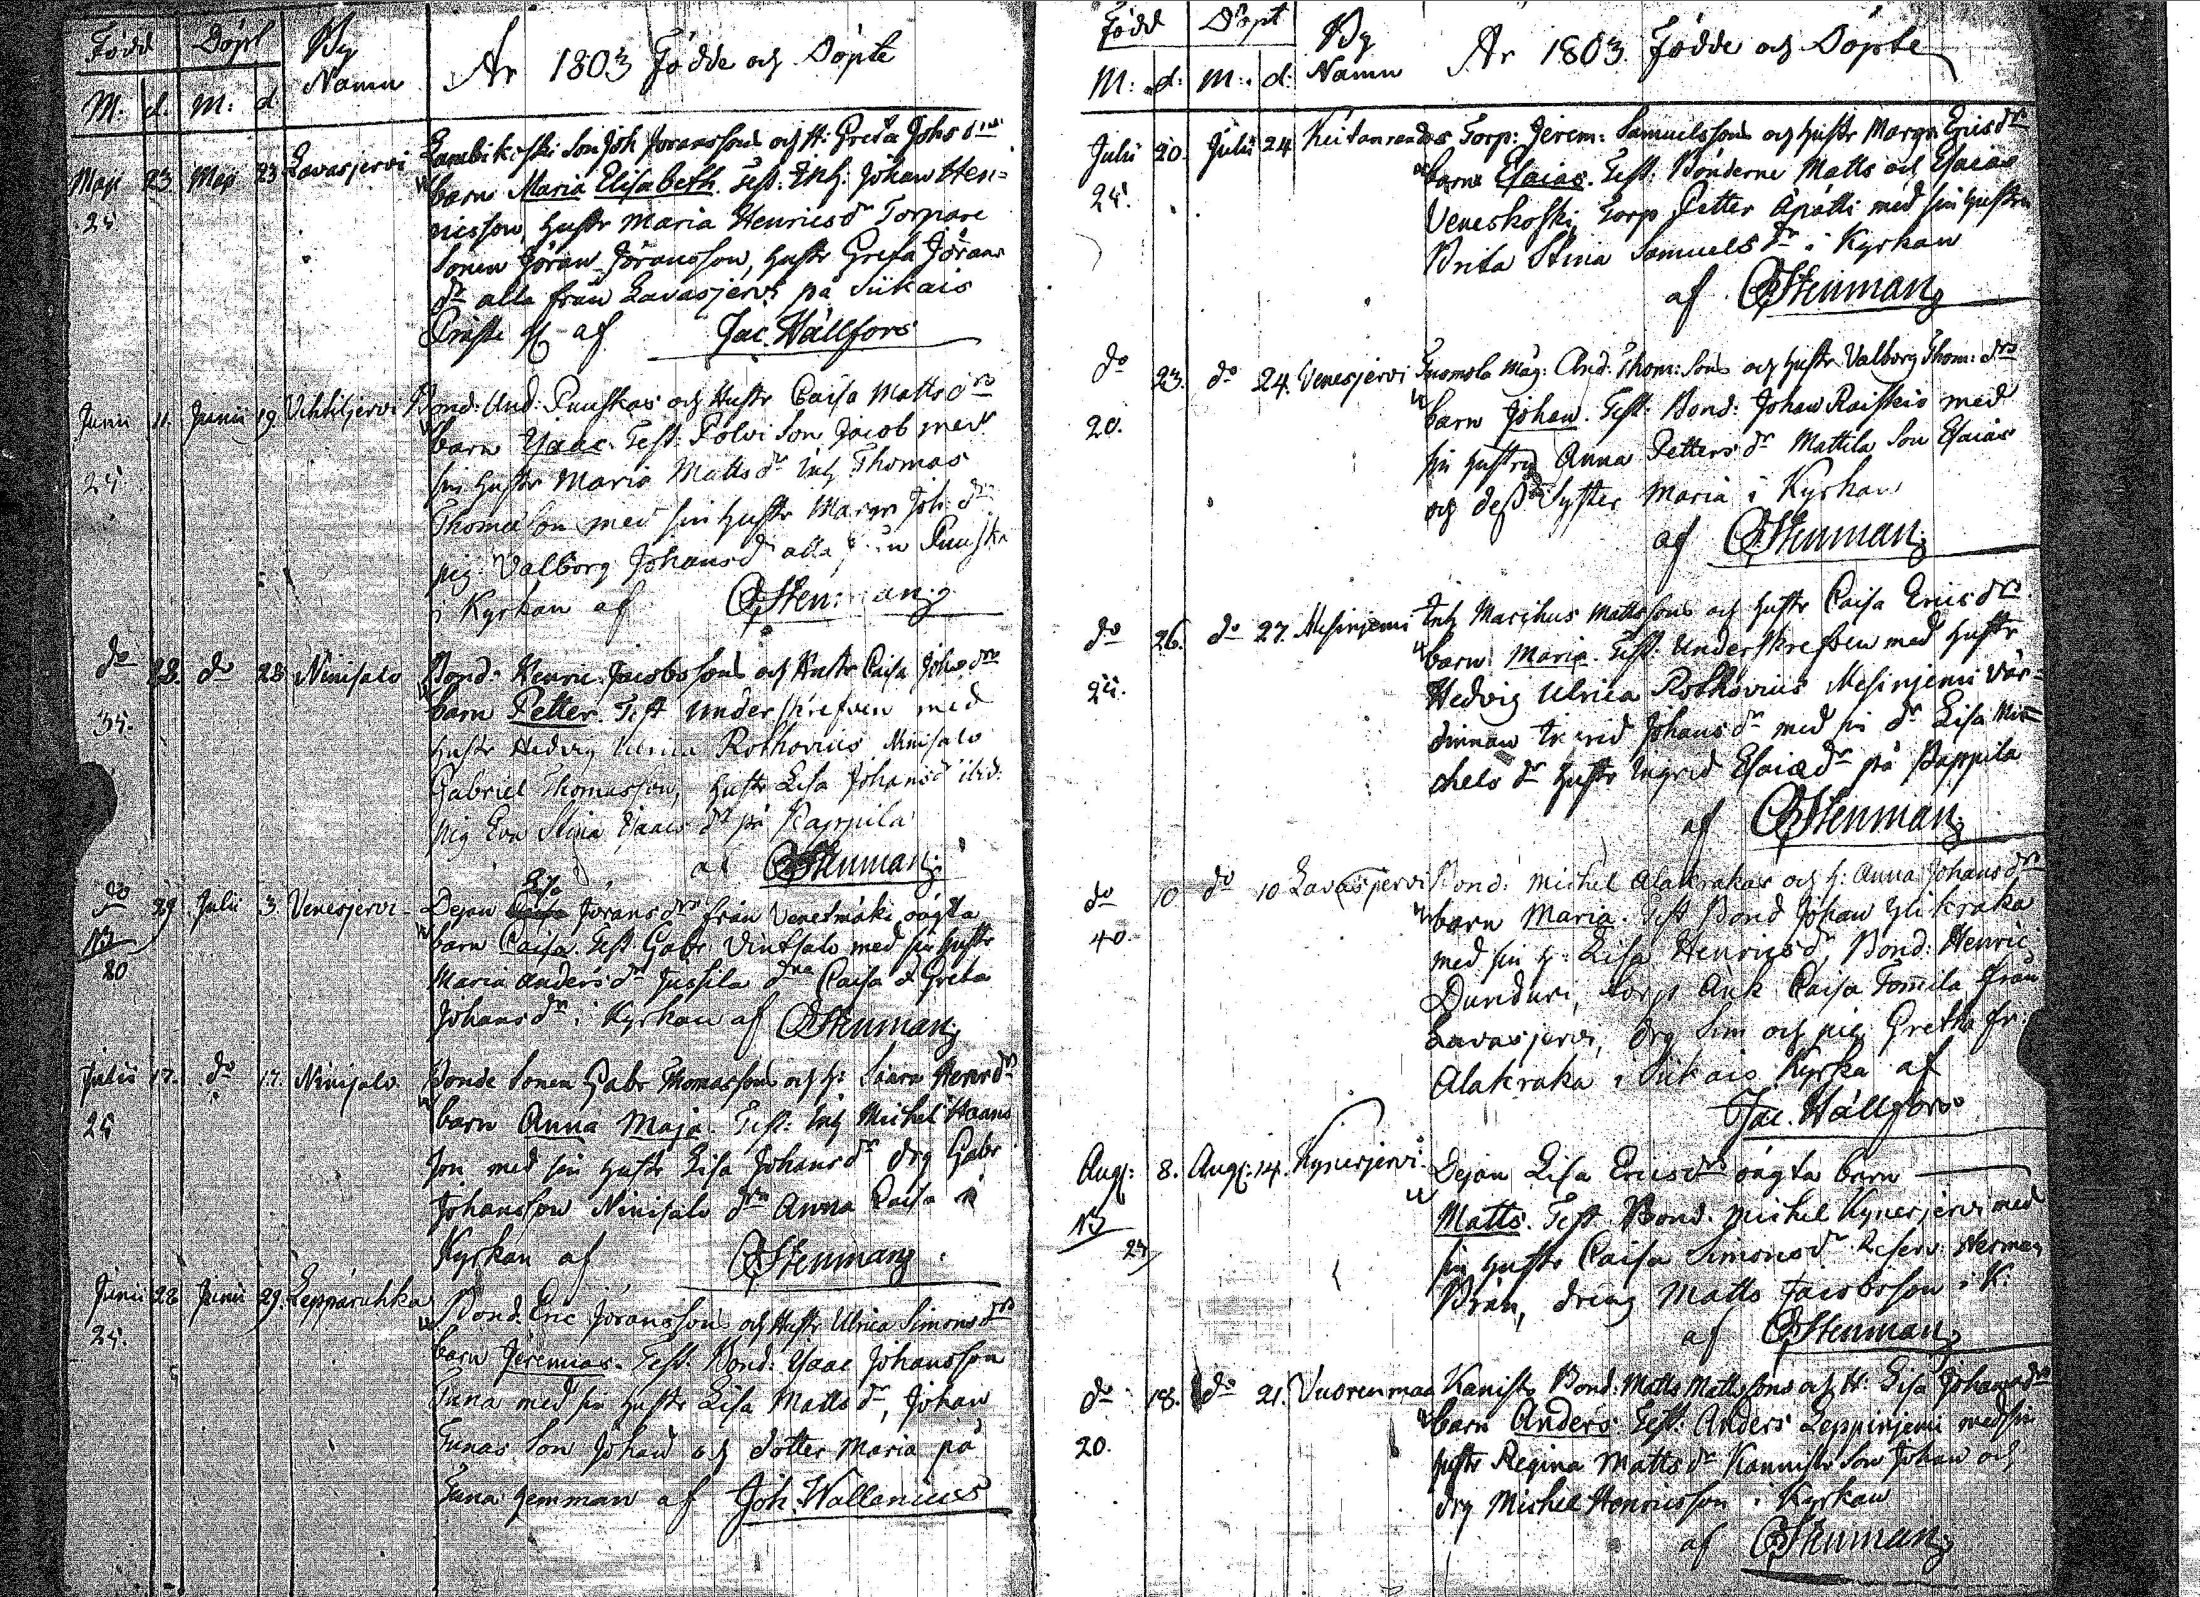 Född Döpt By Namn År 1803 Födde och Döpte
M: d. M: d.
Maji 23 Maji 23 Lavasjervi Lambikoski Son Joh Joranssons och H: Greta Johs drs
25 barn Maria Elisabeth. Test: Inh: Johan Hen=
ricsson, hustr Maria Henricsdr Torpare
Sonen Jöran Jöransson, hustr Greta Jörans
dr alla från Lavasjervi på Siikais
af Jac. Wällfors
Junii 11. Junii 19. Vihtiljervi Bond: And: Puuskas och Hustr Caisa Matts drs
25 barn Isaac. Test: Polvi Son Jacob med
sin hustr Maria Matts dr Inh Thomas
Thomæson med sin hustr Margr Joh: dr
pig: Valborg Johansdr alla Puuska
i Kyrkan af Stenman
do 28. do 28 Niinisalo Bond: Henric Jacobssons och Hustr Caisa Johs drs
35. barn Petter. Test Underskrefven med
hustr Hedvig Ulrica Rothovius Niinisalo
Gabriel Thomasson, hustr Lisa Johansdr ibid:
pig Eva Stina Isaacs dr på Pappila
af Stenman
do 29. Julii 3. Venesjervi Dejan Lisa Joransdrs från Venesmäki oägta
N3 barn Caisa. Test. Gabr Vintsalo med sin hustr
20 Maria Andersdr Jussila drna Caisa & Greta
Johans dr i Kyrkan af Stenman
Julii 17. do 17. Niinisalo Bonde Sonen Gabr Thomassons och H: Saara Henrdrs
25 barn Anna Maja. Test: Inh Michel Haans
son med sin hustr Lisa Johansdr drg Gabr
Johansson Niinisalo drn Anna Caisa i
Kyrkan af Stenman
Junii 28 Junii 29. Lepparuhka Bond. Eric Joranssons och Hustr Ulrica Simonsdrs
25. barn Jeremias. Test: Bond: Isaac Johansson
Tuna med sin hustr Lisa Matts dr, Johan
Tunas Son Johan och dotter Maria på
Tuna hemman af Joh. Wallenius
Född Döpt By Namn År 1803. Födde och Döpte
M: d: M: d:
Julii 20. Julii 24 Keitanrandas Torp: Jerem: Samuelssons och hustr Margr Ericsdrs
25. barn Esaias. Test: Bönderne Matts och Esaias
Veneskoski, Torp Petter Äpätti med sin hustru
Brita Stina Samuelsdr i Kyrkan
af Stenman
do 23. do 24. Venesjervi Tuomola Måg: And: Thom: Sons och hustr Valborg Thom: drs
20. barn Johan. Test: Bond: Johan Raiskio med
sin hustru Anna Petters dr Mattila Son Esaias
och dess Syster Maria i Kyrkan
af Stenman
do 26. do 27. Mesinjemi Inh Marchus Mattssons och hustr Caisa Ericsdrs
25. barn: Maria. Test. Underskrefven med hustr
Hedvig Ulrica Rothovius Mesinjemi Vär=
dinnan Ingrid Johansdr med sin dr Lisa Mi=
chels dr hustr Ingrid Esaiædr på Pappila
af Stenman
do 10 do 10 Lavasjervi Bond: Michel Alakrakas och H: Anna Johans drs
40. barn Maria. Test Bond Johan Ylikraka
med sin H: Lisa Henricsdr, Bond: Henric
Dunduri, torp Ank Caisa Tommila från
Lavasjervi, drg Sim och pig Gretha fr:
Alakraka i Siikais Kyrka af
Jac. Wällfors
Aug: 8. Aug: 14. Kynesjervi Dejan Lisa Ericsdrs oägta barn
N3 Matts. Test. Bond: Michel Kynesjervi med
24 sin hustr Caisa Simonsdr Reserv: Herman
Brän, dreng Matts Jacobsson i K:
af Stenman
do 18. do 21. Vuorenmaa Kanisto Bond: Matts Mattssons och H: Lisa Johansdrs
20. barn Anders Test: Anders Leppinjemi med sin
hustr Regina Matts dr Kannisto Son Johan och
drg Michel Henricsson i Kyrkan
af Stenman